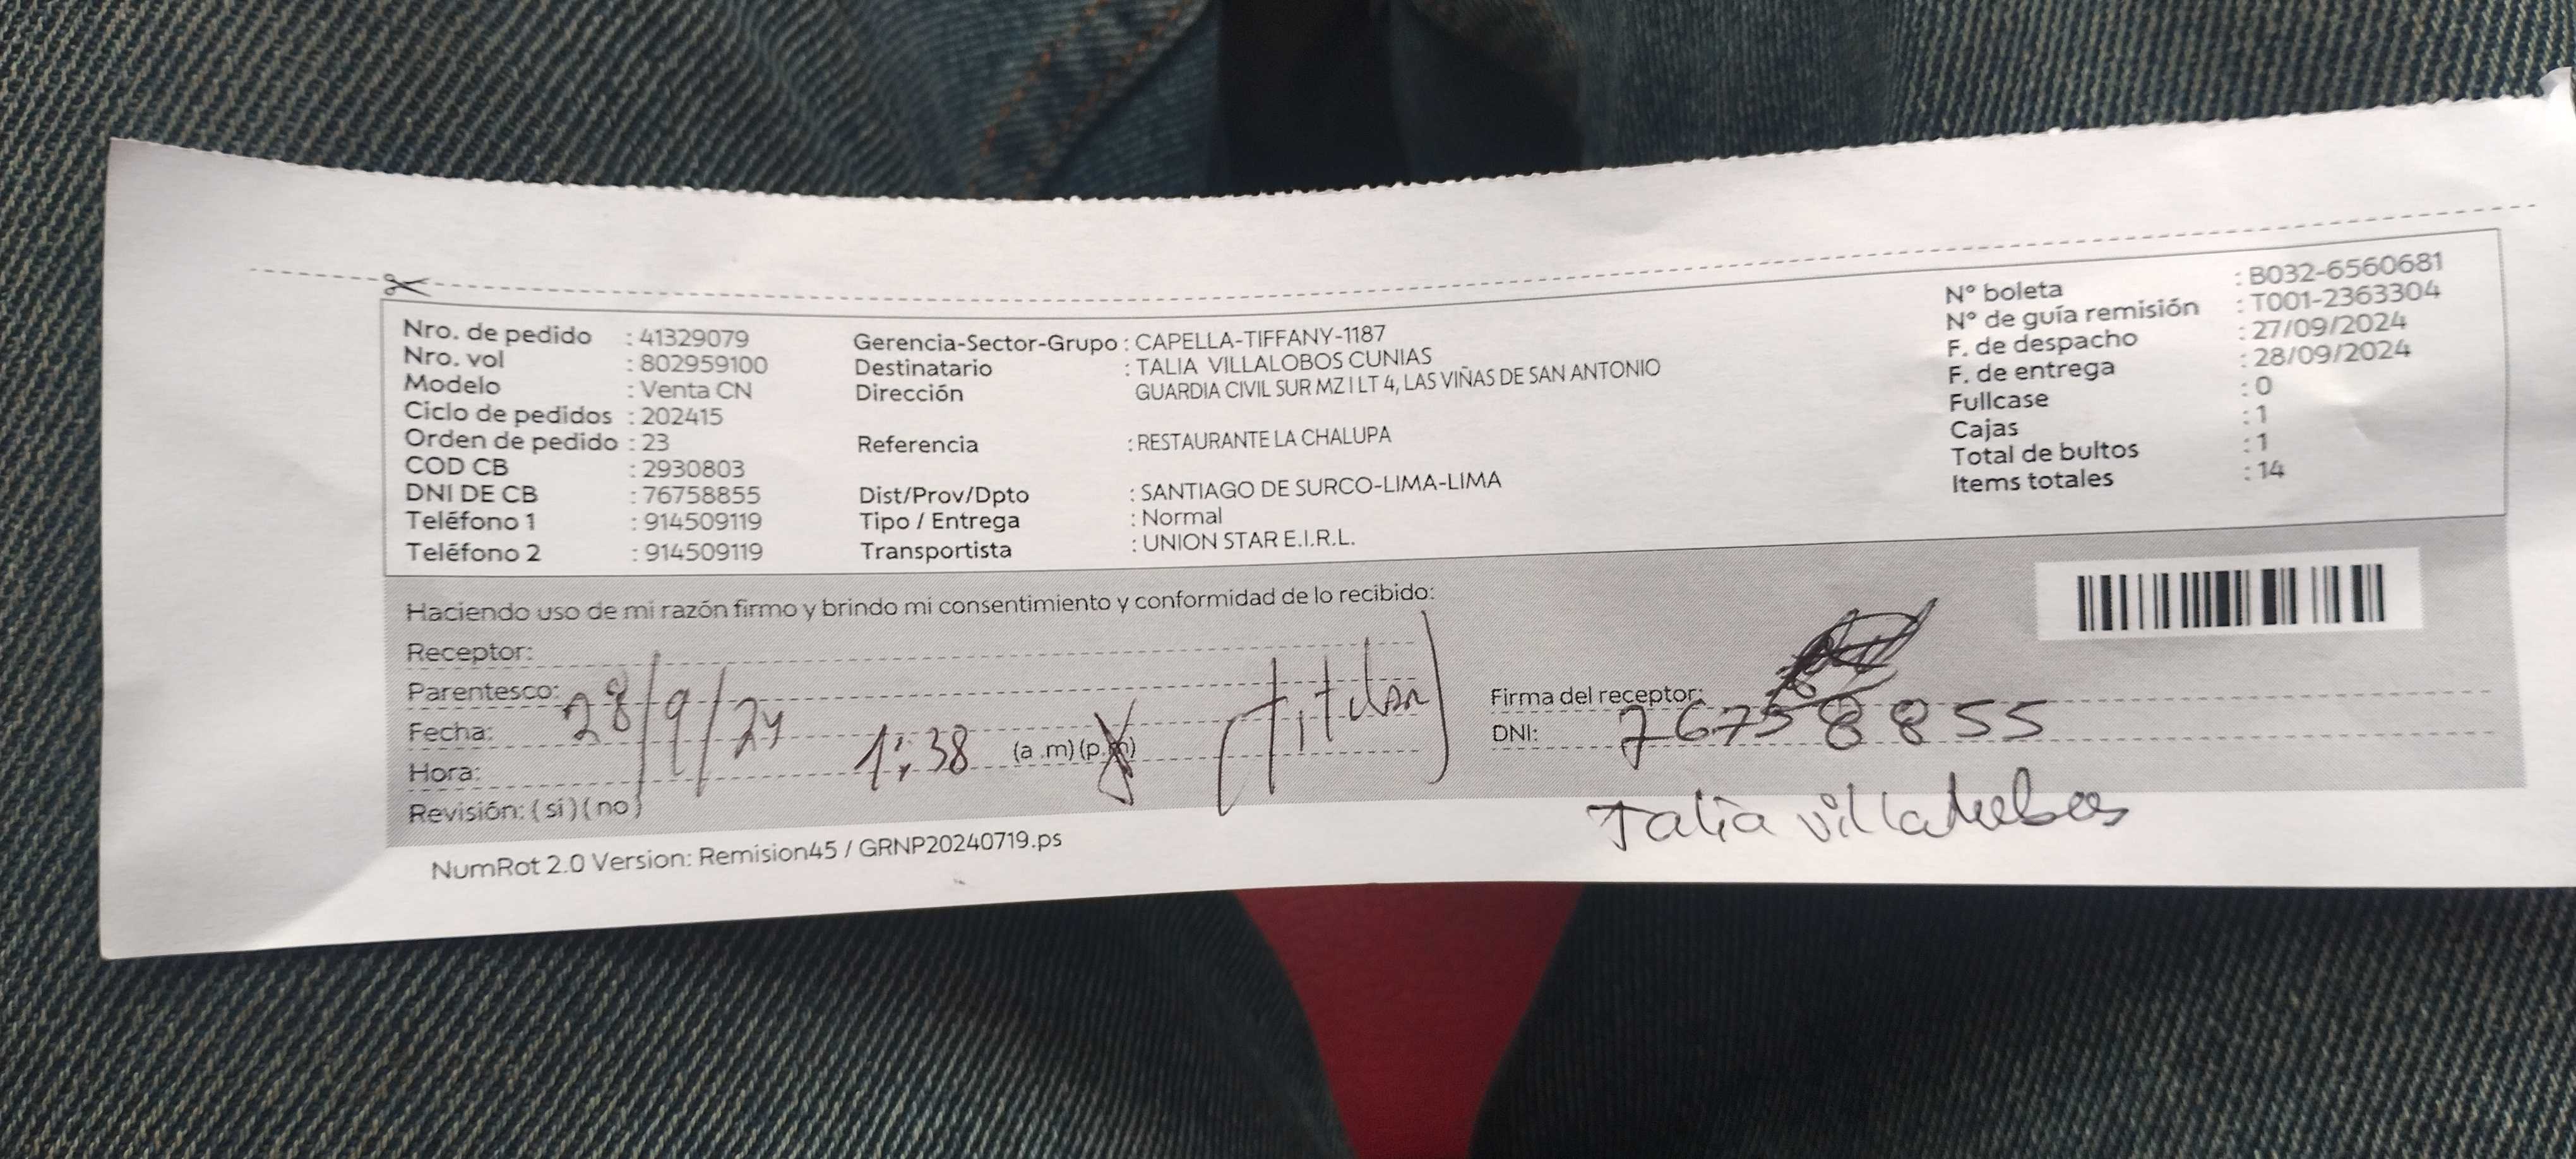 Nro. de pedido : 41329079
Nro. vol : 802959100
Modelo : Venta CN
Ciclo de pedidos : 202415
Orden de pedido : 23
COD CB : 2930803
DNI DE CB : 76758855
Teléfono 1 : 914509119
Teléfono 2 : 914509119
Gerencia-Sector-Grupo : CAPELLA-TIFFANY-1187
Destinatario : TALIA VILLALOBOS CUNIAS
Dirección GUARDIA CIVIL SUR MZ I LT 4, LAS VIÑAS DE SAN ANTONIO
Referencia : RESTAURANTE LA CHALUPA
Dist/Prov/Dpto : SANTIAGO DE SURCO-LIMA-LIMA
Tipo / Entrega : Normal
Transportista : UNION STAR E.I.R.L.
N° boleta : B032-6560681
N° de guía remisión : T001-2363304
F. de despacho : 27/09/2024
F. de entrega : 28/09/2024
Fullcase : 0
Cajas : 1
Total de bultos : 1
Items totales : 14
Haciendo uso de mi razón firmo y brindo mi consentimiento y conformidad de lo recibido:
Receptor:
Parentesco: (titular)
Fecha: 28/9/24
Hora: 1:38 (a.m) (p.m)
Revisión: (si) (no)
Firma del receptor:
DNI: 76758855
Talia villalobos
NumRot 2.0 Version: Remision45 / GRNP20240719.ps